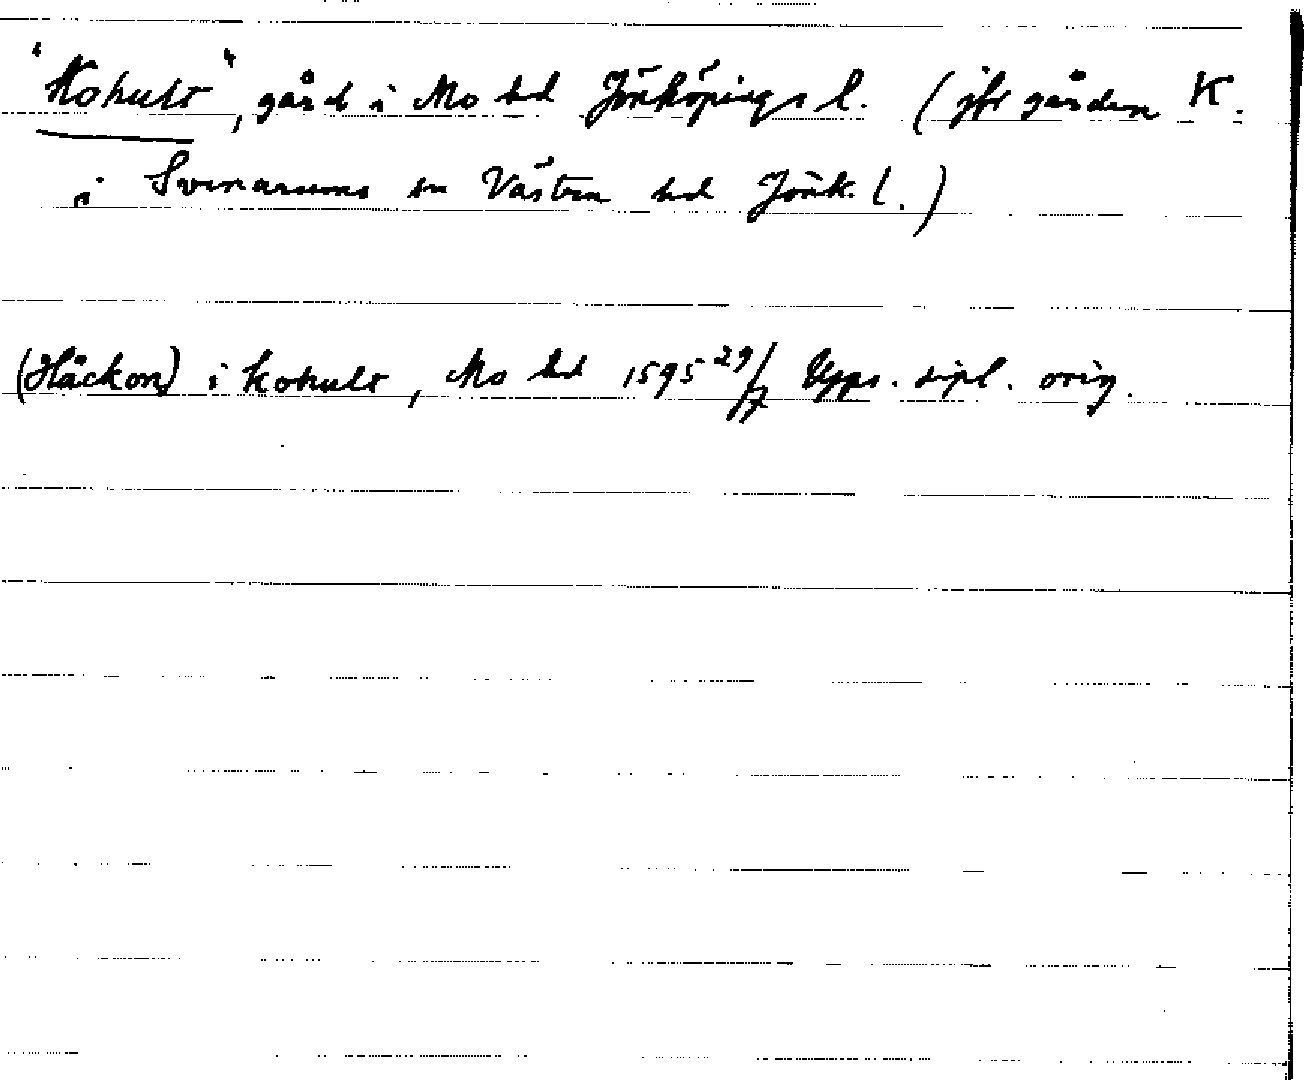 "Kohult", gård i Mo hd Jönköpings l. (jfr gården K.
i Svenarums sn Västra hd Jönk. l.)
(Håckon) i kohult, Mo hd 1595 29/7 Upps. dipl. orig.